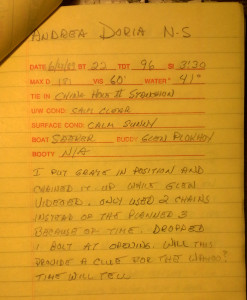 ANDREA DORIA N-S
DATE BT 22 TDT 96 SI 3:30
MAX D 181 VIS 60' WATER° 41°
TIE IN CHINA HOLE II STANCHION
U/W COND: CALM CLEAR
SURFACE COND: CALM SUNNY
BOAT SEEKER BUDDY GLEN PLOKHOY
BOOTY N/A
I PUT GRATE IN POSITION AND
CHAINED IT UP WHILE GLEN
VIDEOED. ONLY USED 2 CHAINS
INSTEAD OF THE PLANNED 3
BECAUSE OF TIME. DROPPED
1 BOLT AT OPENING. WILL THIS
PROVIDE A CLUE FOR THE WAHOO?
TIME WILL TELL